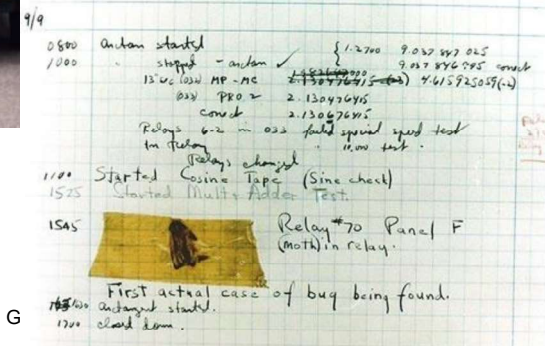 9/9
0800 antan started { 1.2700 9.037 847 025
1000 " stopped - antan ✓ 9.037 846 995 correct
13" UC (032) MP - MC 2.130476415 4.615925059(-2)
(033) PRO 2 2.130476415
correct 2.130676415
Relays 6-2 in 033 failed special speed test
in Relay " 10.000 test.
Relays changed
1100 Started Cosine Tape (Sine check)
1525 Started Mult + Adder Test.
1545 Relay #70 Panel F
(moth) in relay.
First actual case of bug being found.
1630 antangent started.
1700 closed down.
G